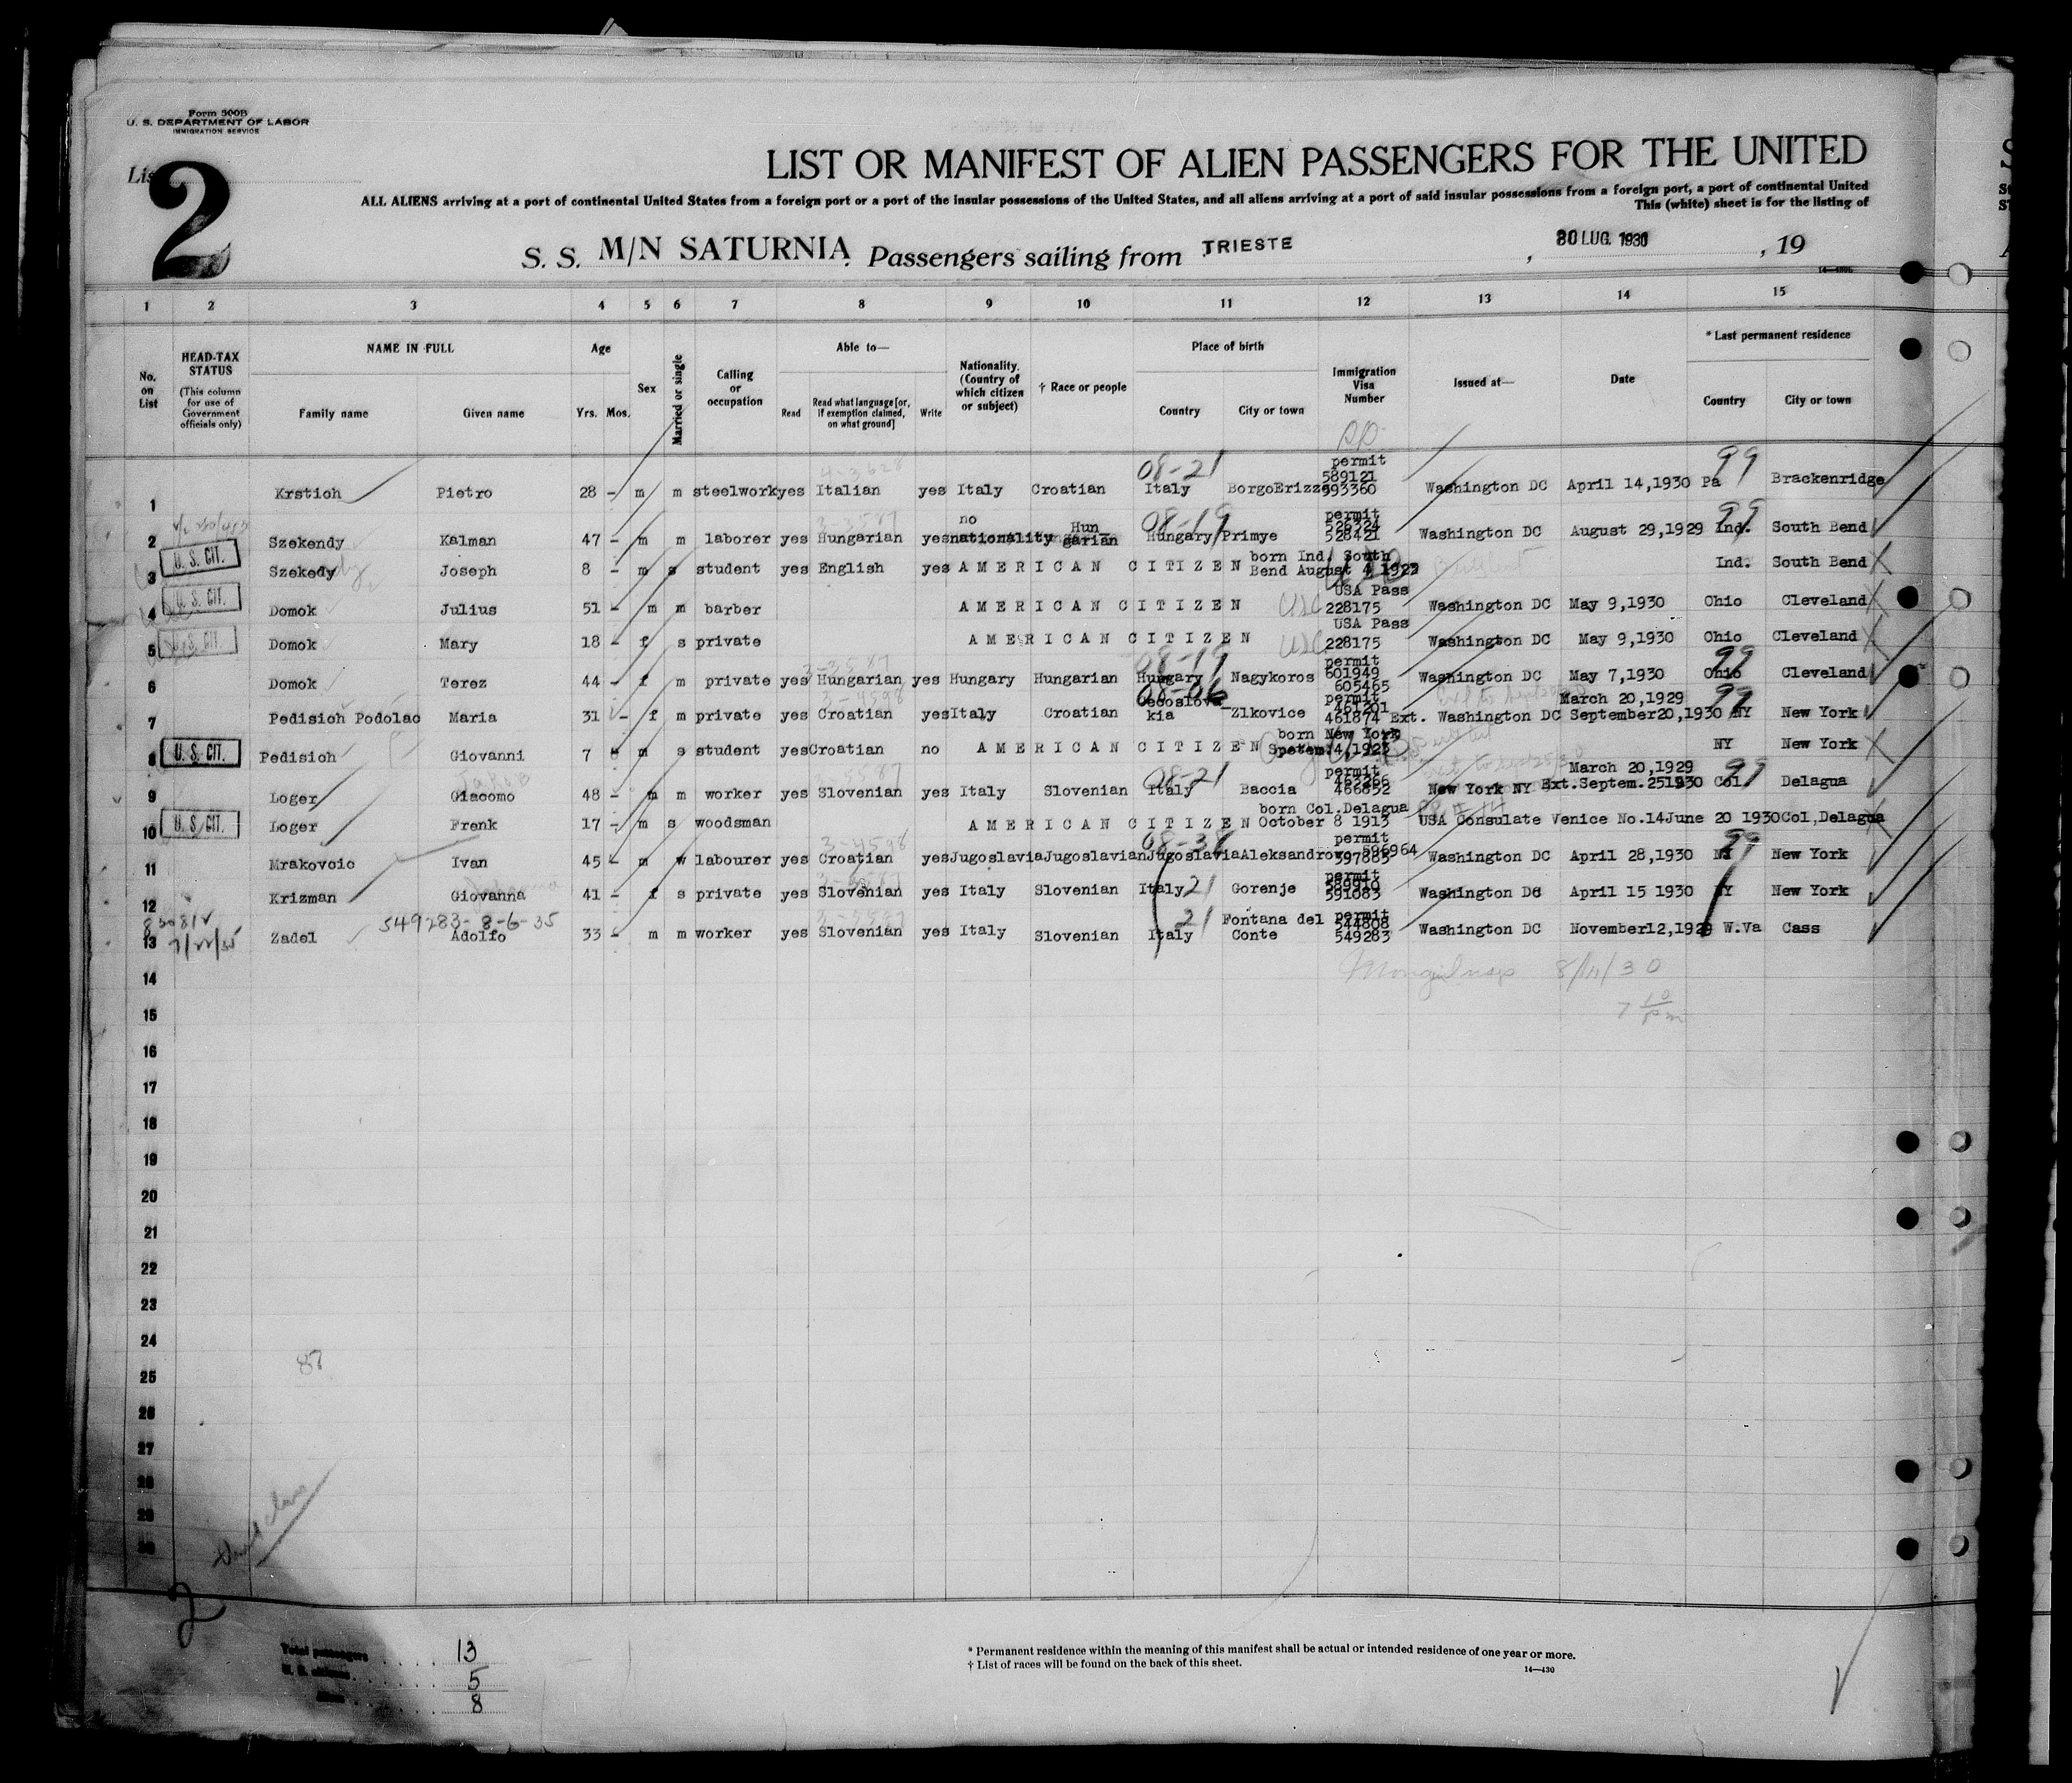 Form 500B
U. S. DEPARTMENT OF LABOR
IMMIGRATION SERVICE
List
2
LIST OR MANIFEST OF ALIEN PASSENGERS FOR THE UNITED
ALL ALIENS arriving at a port of continental United States from a foreign port or a port of the insular possessions of the United States, and all aliens arriving at a port of said insular possessions from a foreign port, a port of continental United
This (white) sheet is for the listing of
S. S. M/N SATURNIA Passengers sailing from TRIESTE, 30 LUG. 1930, 19
1 2 3 4 5 6 7 8 9 10 11 12 13 14 15
No. on List
HEAD-TAX STATUS (This column for use of Government officials only)
NAME IN FULL Family name Given name
Age Yrs. Mos.
Sex
Married or single
Calling or occupation
Able to— Read Read what language [or, if exemption claimed, on what ground] Write
Nationality. (Country of which citizen or subject)
† Race or people
Place of birth Country City or town
Immigration Visa Number
Issued at—
Date
* Last permanent residence Country City or town
1 Krstich Pietro 28 - m m steelwork yes Italian yes Italy Croatian 08-21 Italy BorgoErizzo permit 589121 593360 Washington DC April 14,1930 99 Pa Brackenridge
2 Szekendy Kalman 47 - m m laborer yes Hungarian yes no nationality Hungarian 08-19 Hungary Primye permit 526324 528421 Washington DC August 29,1929 99 Ind. South Bend
3 U. S. CIT. Szekedy Joseph 8 - m s student yes English yes AMERICAN CITIZEN born Ind. South Bend August 4 1922 Ind. South Bend
4 U. S. CIT. Domok Julius 51 - m m barber AMERICAN CITIZEN USC USA Pass 228175 Washington DC May 9,1930 Ohio Cleveland
5 U. S. CIT. Domok Mary 18 - f s private AMERICAN CITIZEN USC USA Pass 228175 Washington DC May 9,1930 Ohio Cleveland
6 Domok Terez 44 - f m private yes Hungarian yes Hungary Hungarian 08-19 Hungary Nagykoros permit 601949 605465 Washington DC May 7,1930 99 Ohio Cleveland
7 Pedisich Podolac Maria 31 - f m private yes Croatian yes Italy Croatian 08-06 Cecoslovakia Zlkovice permit 461201 461874 Ext. Washington DC March 20,1929 September20,1930 99 NY New York
8 U. S. CIT. Pedisich Giovanni 7 m s student yes Croatian no AMERICAN CITIZEN born New York Septem.4,1923 NY New York
9 Loger Giacomo 48 - m m worker yes Slovenian yes Italy Slovenian 08-21 Italy Baccia permit 463266 466852 New York NY March 20,1929 Ext.Septem.25 1930 99 Col. Delagua
10 U. S. CIT. Loger Frenk 17 - m s woodsman AMERICAN CITIZEN born Col.Delagua October 8 1913 USA Consulate Venice No.14 June 20 1930 Col,Delagua
11 Mrakovcic Ivan 45 - m w labourer yes Croatian yes Jugoslavia Jugoslavian 08-38 Jugoslavia Aleksandrovo permit 596964 597885 Washington DC April 28,1930 99 NY New York
12 Krizman Giovanna 41 - f s private yes Slovenian yes Italy Slovenian Italy 21 Gorenje permit 589910 591083 Washington DC April 15 1930 NY New York
549283- 8-6-35
13 Zadel Adolfo 33 - m m worker yes Slovenian yes Italy Slovenian 21 Italy Fontana del Conte permit 544808 549283 Washington DC November12,1929 W.Va Cass
14
15
16
17
18
19
20
21
22
23
24
87
25
26
27
28
29
30
2
Total passengers 13
U. S. citizens 5
Aliens 8
* Permanent residence within the meaning of this manifest shall be actual or intended residence of one year or more.
† List of races will be found on the back of this sheet.
14—430